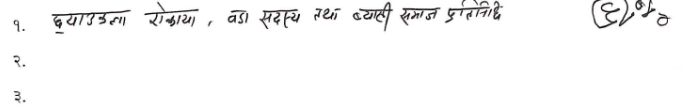 १. द्याउकला रोकाया, वडा सदस्य तथा ब्यासी समाज प्रतिनिधि
२.
३.